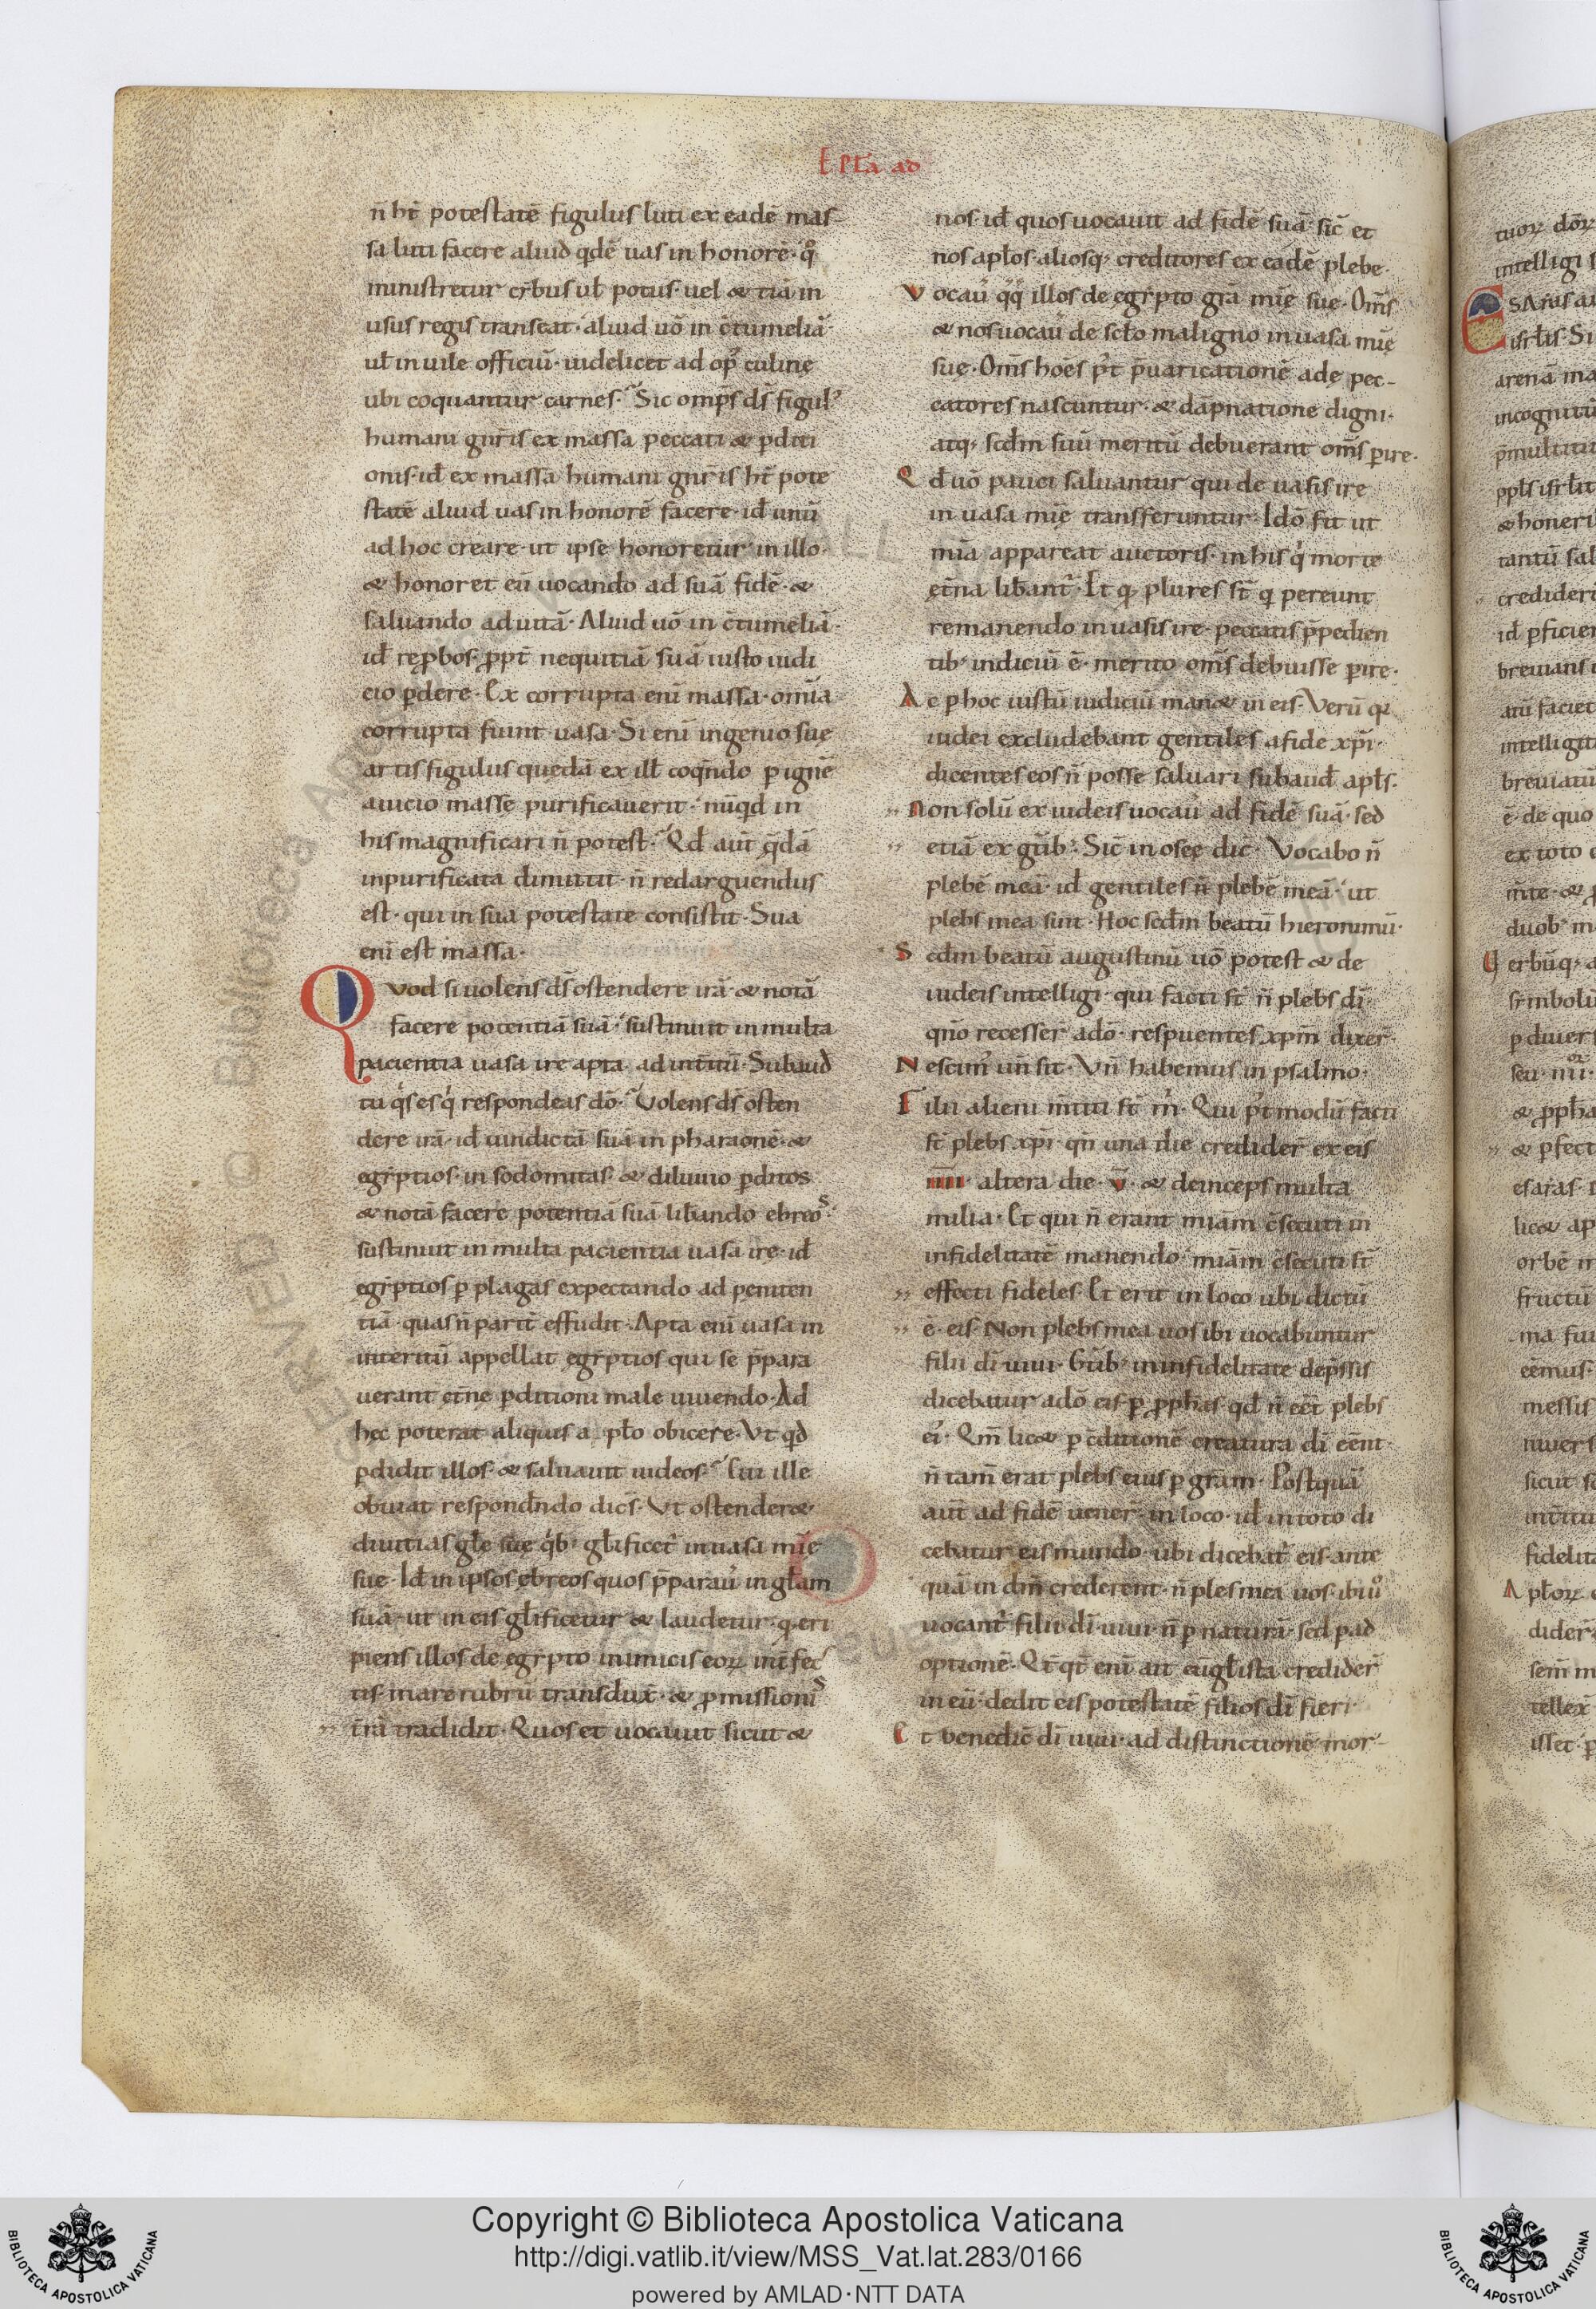 E PL̄a ad
n̄ ht̄ potestatē figulus luti ex eadē mas-
sa luti facere aliud qdē uas in honorē· qͦ
ministretur cybus ul̄ potus· uel & tiā in
usus regis transeat· aliud uō in c̄tumeliā·
ul̄ in uile officiū· uidelicet ad opꝰ culinę
ubi coquantur carnes· Sic omp̄s ds̄ figulꝰ
humani gn̄ris ex massa peccati & pditi
onis· id̄ ex massa humani gn̄ris ht̄ pote
statē aliud uas in honorē facere· id̄ unū
ad hoc creare· ut ipse honoretur in illo·
& honoret eū uocando ad suā fidē· &
saluando ad uitā· Aliud uō in c̄tumeliā·
id̄ rep̱bos· p̱pt̄ nequitiā suā iusto iudi
cio p̱dere· Ex corrupta enī massa· omīa
corrupta fiunt uasa· Si enī ingenio suę
artis figulus quedā ex ill̄ coqn̄do p̱ ignē
a uicio masse purificauerit· nūqd in
his magnificari n̄ potest· Qd̄ aut̄ q̄dā
inpurificata dimittit· n̄ redarguendus
est· qui in sua potestate consistit· Sua
enī est massa·
Quod si uolens ds̄ ostendere irā· & notā
facere potentiā suā· sustinuit in multa
pacientia uasa ire apta ad int̄itū· Subaud
tu qͥs es qͥ respondeas dō· Volens ds̄ osten
dere irā· id̄ uindictā suā in pharaonē· &
egyptios· in sodomitas· & diluuio p̱ditos
& notā facere potentiā suā lib̄ando ebreoˢ·
sustinuit in multa pacientia uasa irę· id̄
egyptios p̱ plagas expectando ad peniten
tiā· quas n̄ parit̄ effudit· Apta enī uasa in
interitū appellat egyptios qui se p̄para
uerant et̄ne p̱ditioni male uiuendo· Ad
hęc poterat aliquis a pl̄o obicere· Vt qd
p̱didit illos· & saluauit iudeos· Cui ille
obuiat respondn̄do dicˢ· Vt ostender&
diuitias gl̄e suę qͥbꝰ gl̄ificet̄ in uasa mīę
sue· Id̄ in ipsos ebreos quos p̄parau̇ in gl̄am
suā· ut in eis gl̄ificetur & laudetur· q· eri
piens illos de egypto inimicis eoꝝ int̄fec
tis mare rubrū transdux̄· & p̱missioniˢ
t̄rā tradidit· Quos et uocauit sicut &
nos· id̄ quos uocauit ad fidē suā· sic̄ et
nos apl̄os· aliosq; creditores ex eadē plebe·
Vocau̇ qͦqͦ illos de egypto grā mīę sue· Om̄s
& nos uocau̇ de scl̄o maligno in uasa mīę
suę· Om̄s hoēs pͭ p̄uaricationē ade pec-
catores nascuntur· & dāpnatione digni·
atq; scd̄m suū meritū debuerant om̄s p̱ire·
Qd̄ uō pauci saluantur qui de uasis ire
in uasa mīę transferuntur· Idō fit ut
mīa appareat auctoris· in his qͥ morte
et̄na lib̄ant̄· Et q· plures st̄ q pereunt
remanendo in uasis ire· peccatis p̄pedien
tibꝰ· indiciū ē· merito om̄s debuisse p̱ire·
Ac p̱ hoc iustū iudiciū man& in eis· Verū q
iudei excludebant gentiles a fide xp̄i·
dicentes eos n̄ posse saluari· subaud̄ apl̄s·
Non solū ex iudeis uocau̇ ad fidē suā· sed
etiā ex gn̄tibꝰ· Sic̄ in osee dic̄· Vocabo n̄
plebē meā· id̄ gentiles n̄ plebē meā· ut
plebs mea sint· Hoc scd̄m beatū hieronimū·
Scd̄m beatū augustinū uō potest & de
iudeis intelligi· qui facti st̄ n̄ plebs dī·
qn̄o recesser̄ a dō· respuentes xp̄m dixer̄·
Nescimꝰ un̄ sit· Vn̄ habemus in psalmo·
Filii alieni m̄titi st̄ m̄· Qui pͭ modū facti
st̄ plebs xp̄i· qn̄ una die credider̄ ex eis
īīī· altera die v̄· & deinceps multa
milia· Et qui n̄ erant miā̄m c̄secuti in
infidelitatē manendo· miā̄m c̄secuti st̄
effecti fideles· Et erit in loco ubi dictū
ē· eis· Non plebs mea uos ibi uocabuntur
filii dī uiui· Gn̄tibꝰ in infidelitate dep̄ssis
dicebatur a dō eis p̱ p̱ph̄as· qd̄ n̄ eēt plebs
eiꝰ· Qm̄ lic& p̱ c̄ditionē creatura dī eēnt·
n̄ tam̄ erat plebs eius p̱ gram̄· Postquā
aut̄ ad fidē uener̄· in loco· id̄ in toto di
cebatur eis mundo· ubi dicebat̄ eis ante
quā in dm̄ crederent· n̄ ples mea uos· ibi uͦ
uocant̄ filii dī uiui· n̄ p̱ naturā· sed p̱ ad
optionē· Qt̄qt̄ enī ait eūgl̄ista credider̄
in eū· dedit eis potestatē filios dī fieri·
Et benedic̄ dī uiui· ad distinctionē mor-
tuoꝝ
intelligi
Esaias
isrl̄is· Si
arenā ma
incognitū
ppl̄s isrl̄it
& honeri
tantū sal
credideri
id̄ p̱ficien
breuians
intelligit
breuiatū
ē· de quo
ex toto
duobꝰ m
simbolū
p̱ diuer
& p̱ph̄a
& p̱fect
esaias·
lic& ap
orbē
fructū
ma fu
messis
sicut
fidelit
Apl̄oꝝ
dider̄
tellex
isset·
Copyright © Biblioteca Apostolica Vaticana
http://digi.vatlib.it/view/MSS_Vat.lat.283/0166
powered by AMLAD·NTT DATA
BIBLIOTECA APOSTOLICA VATICANA
BIBLIOTECA APOSTOLICA VATICANA